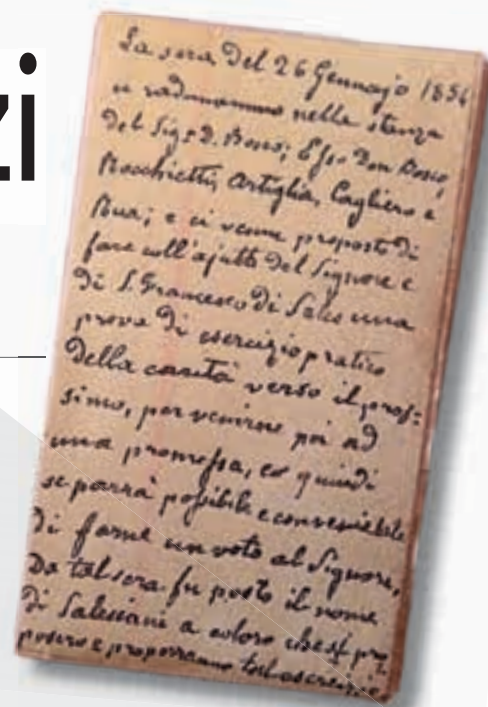 zi
La sera del 26 Gennajo 1854
si radunarono nelle stanza
del Sigr D. Bosco; Esso Don Bosco,
Rocchietti, Artiglia, Cagliero e
Rua; e ci venne proposto di
fare coll'ajutto del Signore e
di S. Francesco di Sales una
prova di esercizio pratico
della carità verso il pros=
simo, per venirne poi ad
una promessa, e quindi
se parrà possibile e conveniente
di farne un voto al Signore,
Da tal sera fu posto il nome
di Salesiani a coloro che si pro
posero e proporranno tal esercizio